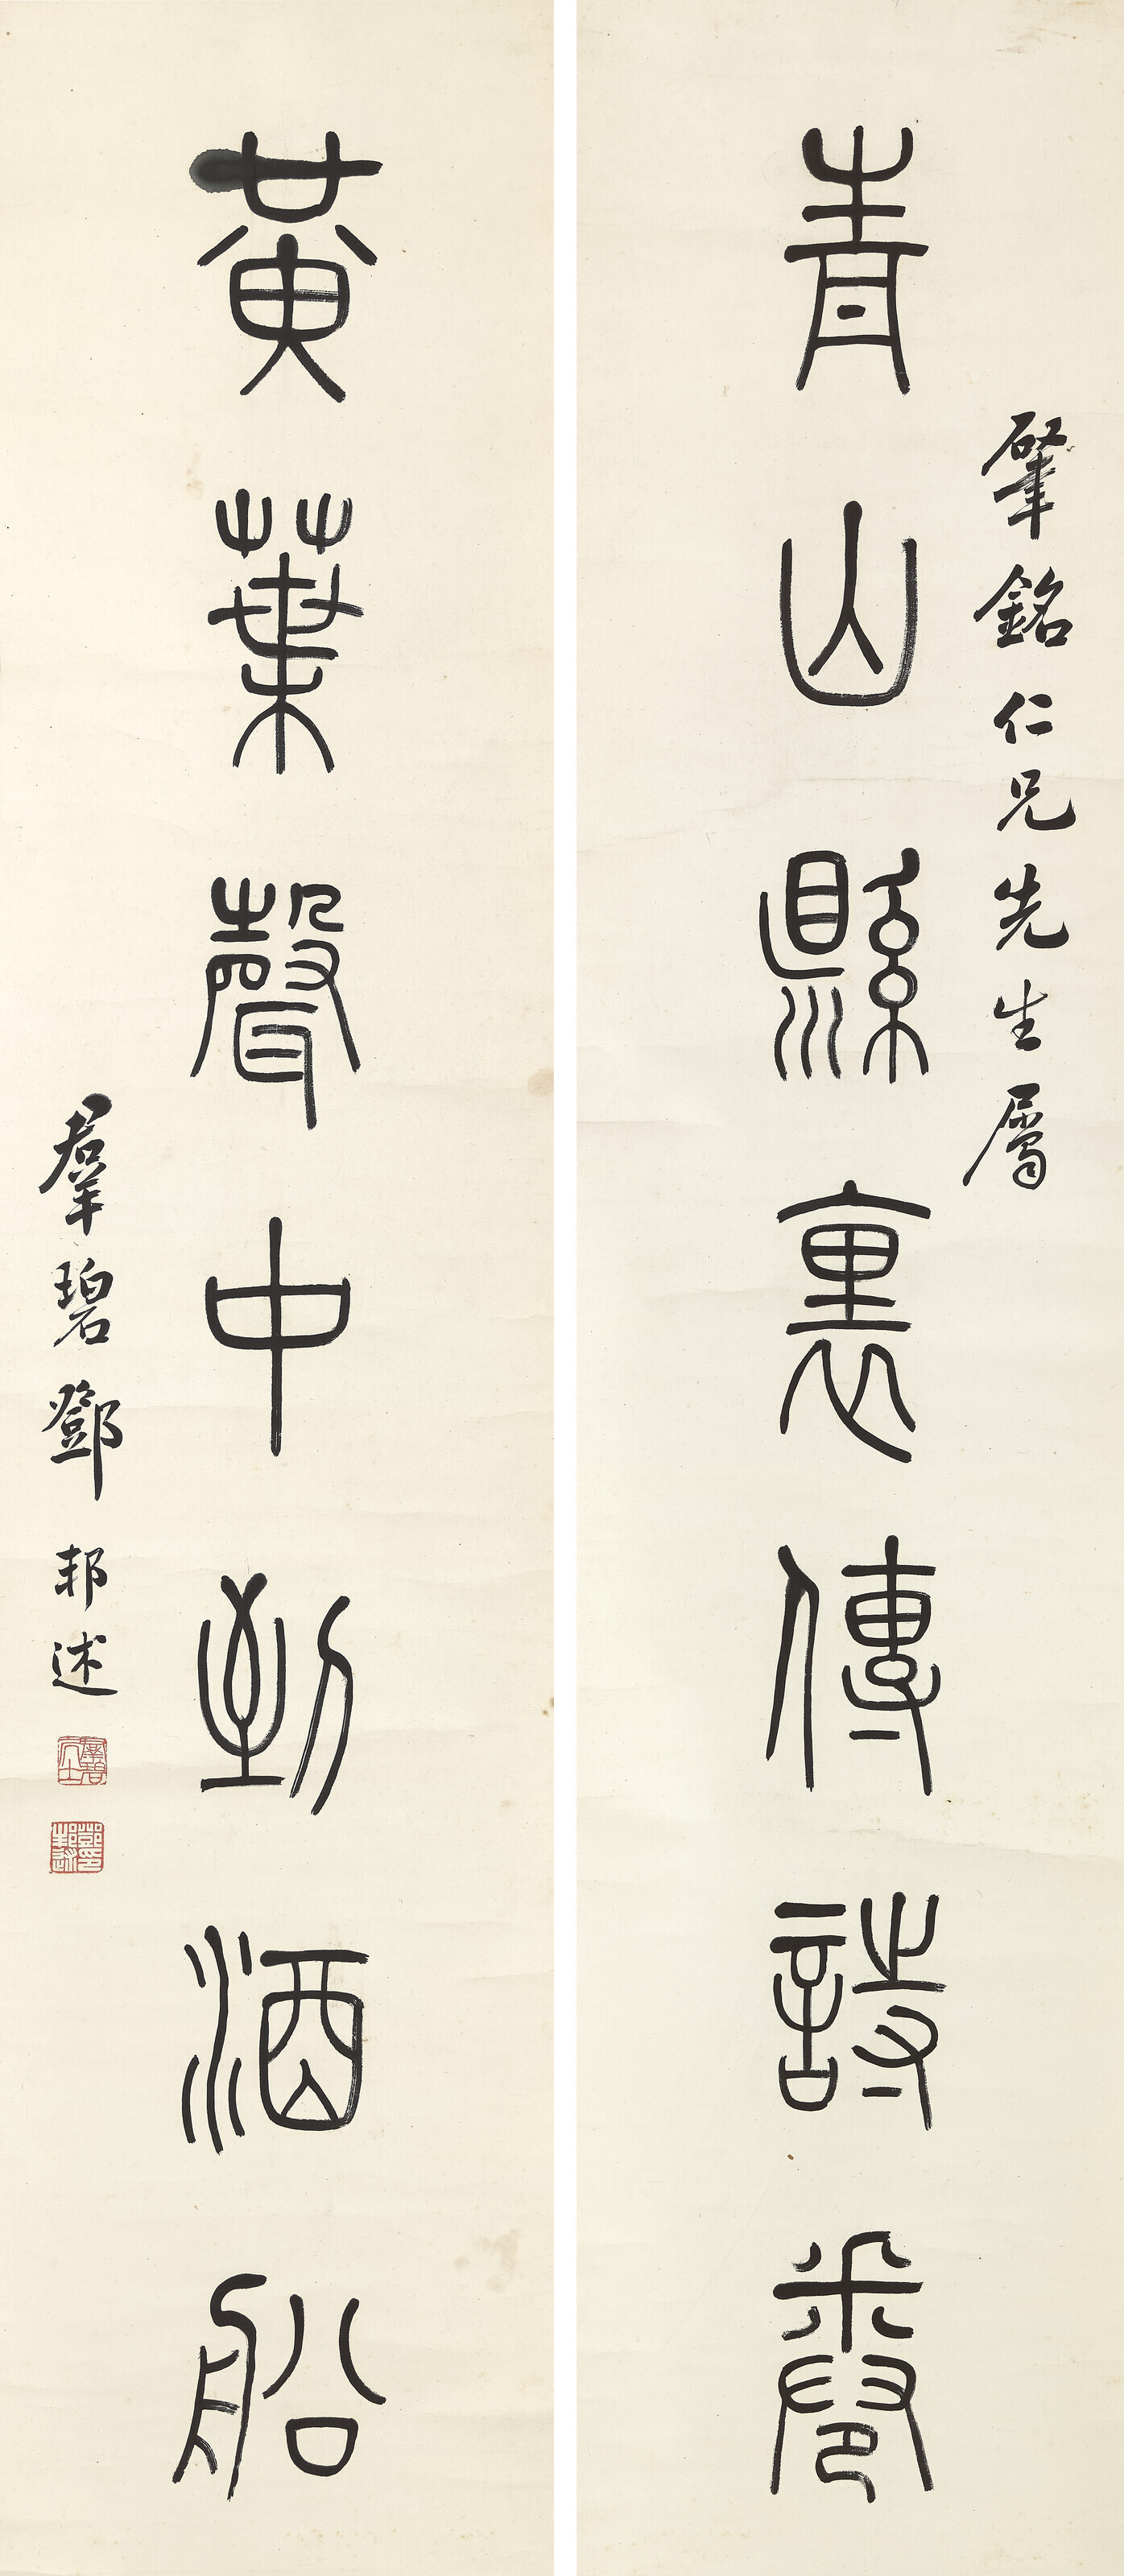 肇銘仁兄先生屬
青山縣裏傳詩卷
黃葉聲中到酒船
羣碧鄧邦述
鄧印邦述